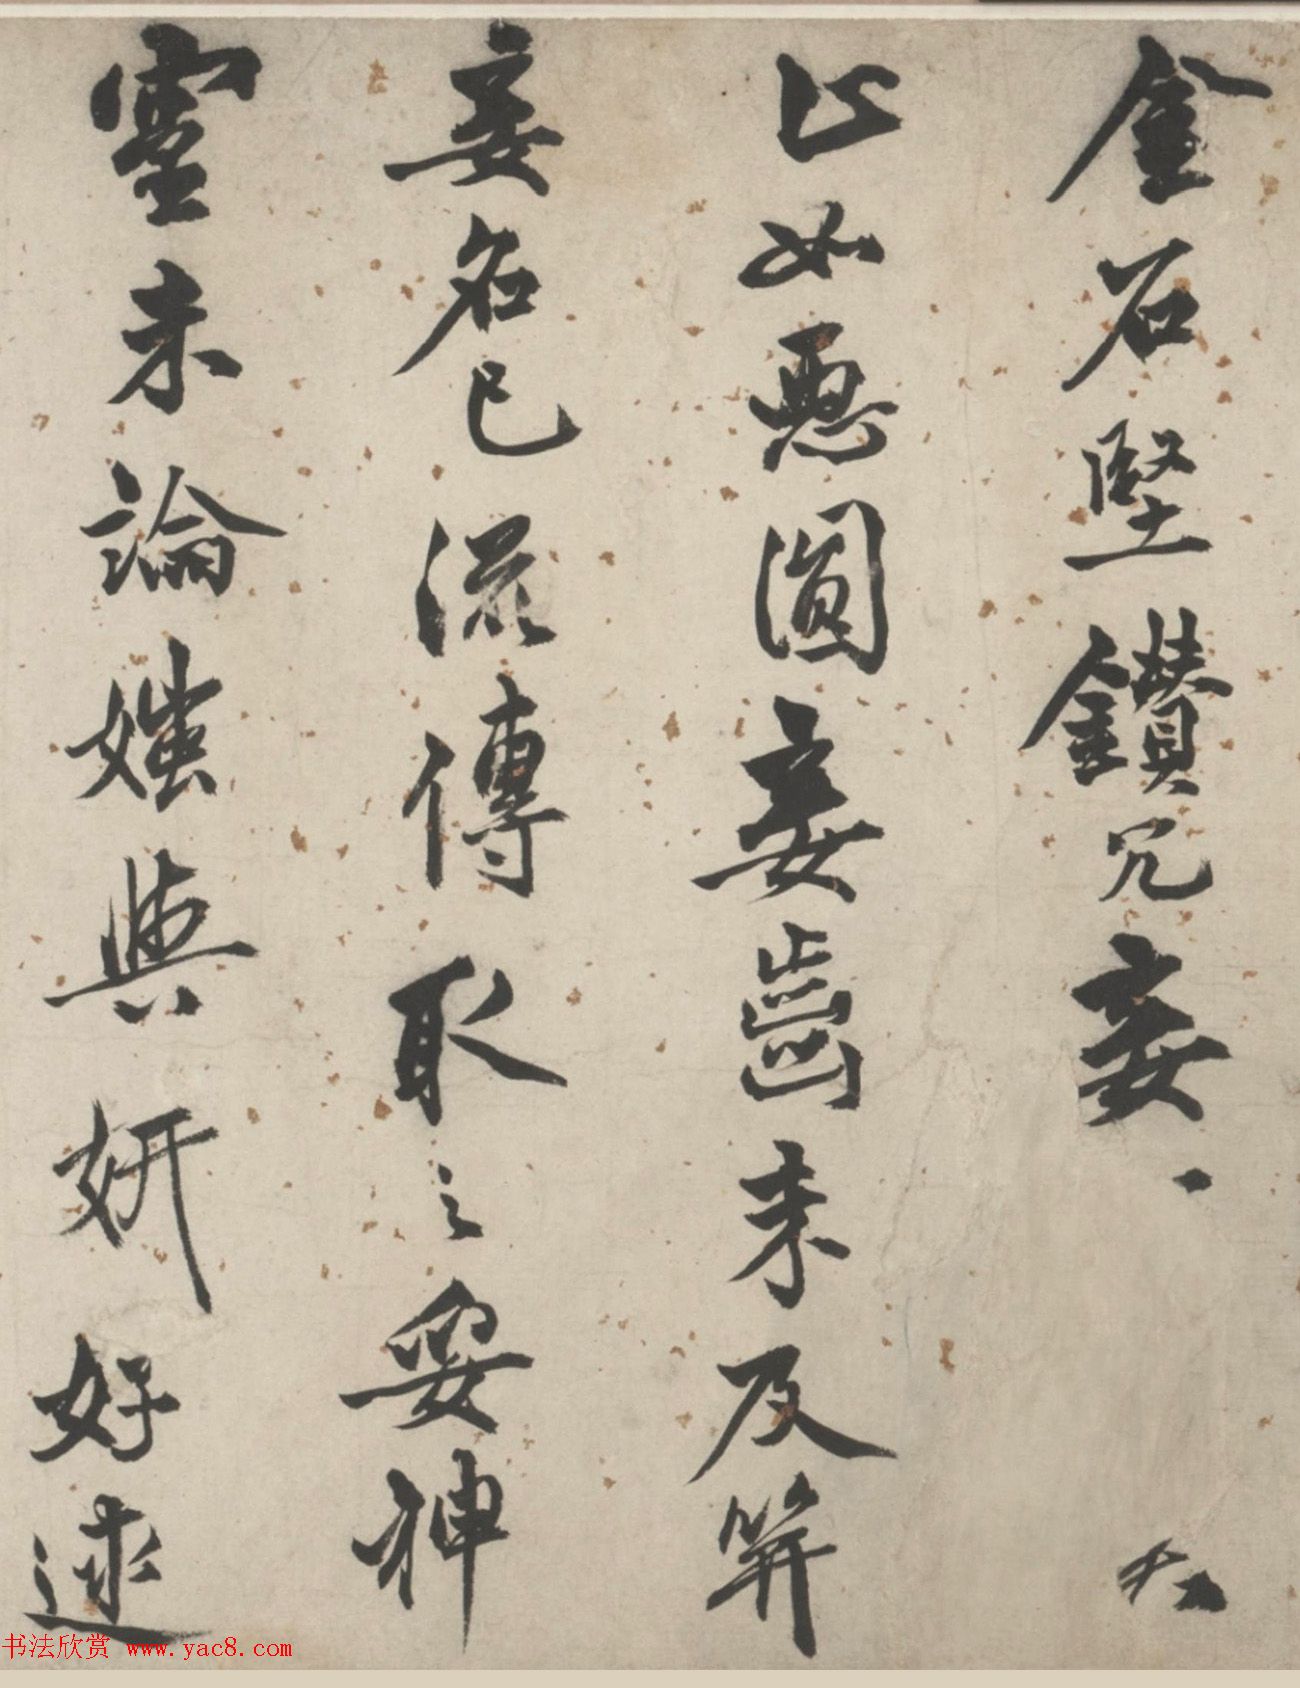 金石堅鑽冗妾丶 大
亡如惡圓妾齒未及笄
妾名已流傳取之妥神
靈未論媸與妍好逑
书法欣赏 www.yac8.com